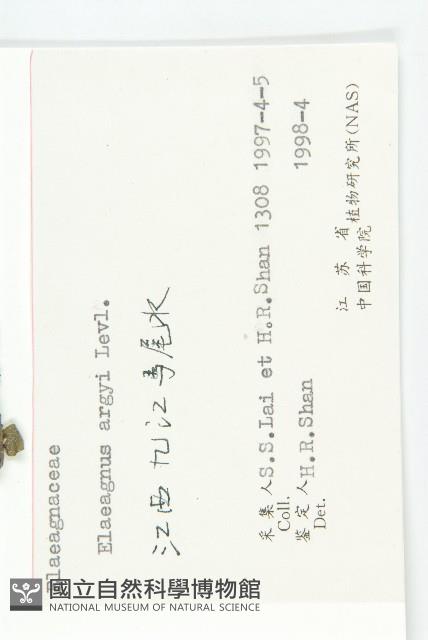 Elaeagnaceae
Elaeagnus argyi Levl.
江西九江马尾水
采集人 S.S.Lai et H.R.Shan 1308 1997-4-5
Coll.
鉴定人 H.R.Shan 1998-4
Det.
江苏省植物研究所(NAS)
中国科学院
國立自然科學博物館
NATIONAL MUSEUM OF NATURAL SCIENCE